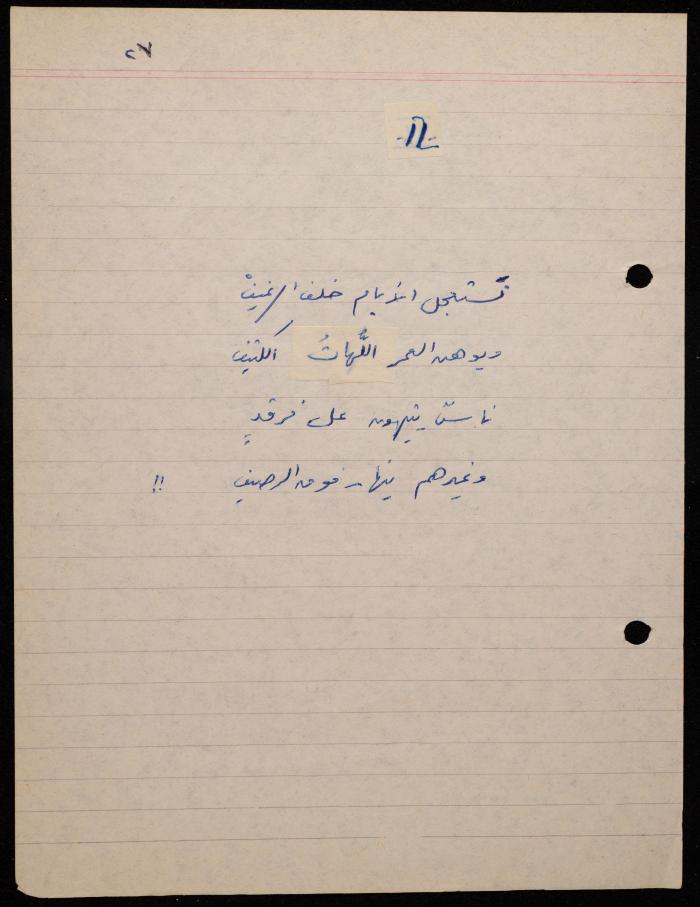 ٢٧
-١٦-
تستعجل الأيام خلف الرغيفْ
ويوهن العمر اللُّهاثُ الكثيف
ناسٌ يتيهون على فرقدٍ
وغيرهم ينهار فوق الرصيف !!